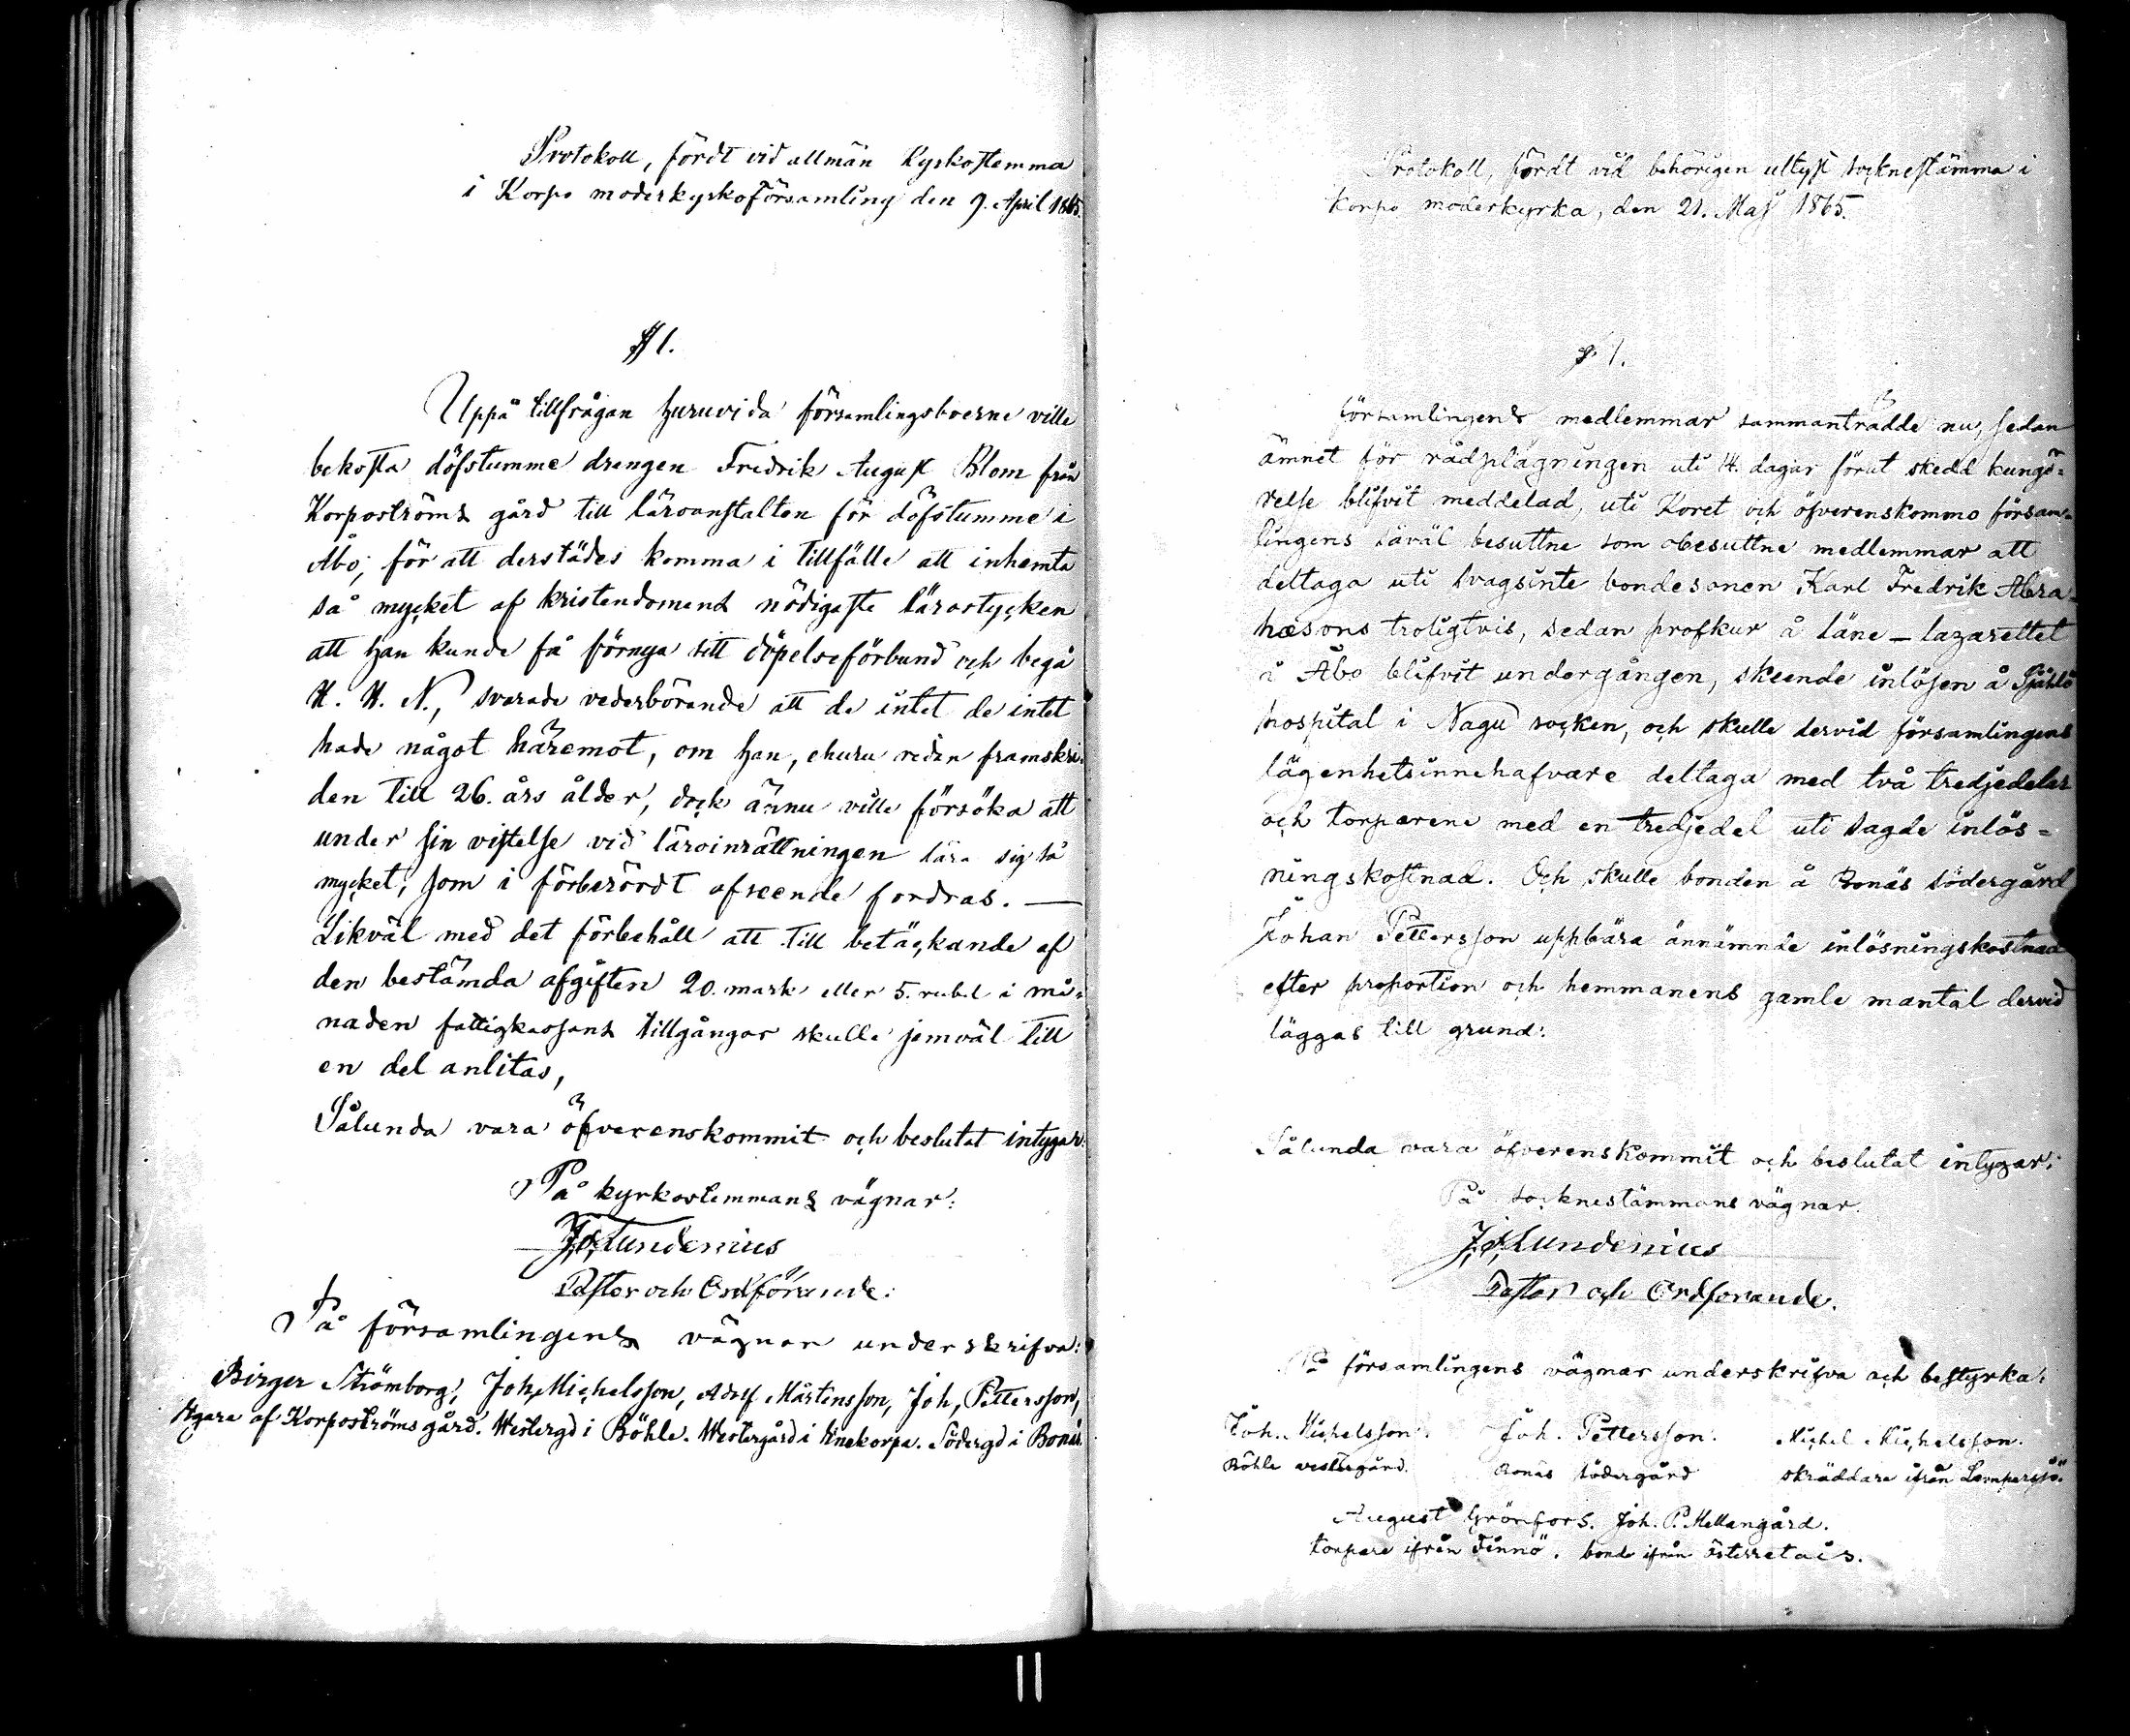 Protokoll, fördt vid allmän Kyrkostemma
i Korpo moderkyrkoförsamling den 9. April 1865.
§ 1.
Uppå tillfrågan huruvida församlingsboerne ville
bekosta döfstumme drengen Fredrik August Blom från
Korpoströms gård till läroanstalten för döfstumme i
Åbo, för att derstädes komma i tillfälle att inhemta
så mycket af kristendomens nödigaste lärostycken
att han kunde få förnya sitt döpelseförbund och begå
H. H. N., svarade vederbörande att de intet de intet
hade något häremot, om han, ehuru redan framskri-
den till 26. års ålder, dock ännu ville försöka att
under sin vistelse vid läroinrättningen lära sig så
mycket, som i förberördt afseende fordras. —
Likväl med det förbehåll att till betäckande af
den bestämda afgiften 20. mark eller 5. rubel i må-
naden fattigkassans tillgångar skulle jemväl till
en del anlitas,
Sålunda vara öfverenskommit och beslutat intygar:
På kyrkostemmans vägnar:
J. Lundenius
Pastor och Ordförande:
På församlingens vägnar underskrifva:
Birger Strömborg, Joh, Michelsson, Adolf Mårtensson, Joh, Pettersson,
Ägare af Korpoströms gård. Westergd i Böhle. Westergård i Wnekorpa. Södergd i Bonäs
Protokoll, fördt vid behörigen utlyst socknestämma i
Korpo moderkyrka, den 21. Maj 1865.
§ 1.
Församlingens medlemmar sammanträdde nu, sedan
ämnet för rådplägningen uti 14. dagar förut skedd kungö-
relse blifvit meddelad, uti Koret och öfverenskommo försam-
lingens såväl besuttne som obesuttne medlemmar att
deltaga uti svagsinte bondesonen Karl Fredrik Abra-
hæsons troligtvis, sedan profkur å läne-lazarettet
i Åbo blifvit undergången, skeende inlösen å Själö
hospital i Nagu socken, och skulle dervid församlingens
lägenhetsinnehafvare deltaga med två tredjedelar
och torparene med en tredjedel uti sagde inlös-
ningskostnad. Och skulle bonden å Bonäs södergård
Johan Pettersson uppbära ännämnde inlösningskostnad
efter proportion och hemmanens gamle mantal dervid
läggas till grund:
Sålunda vara öfverenskommit och beslutat intygar:
På socknestämmans vägnar.
J. Lundenius
Pastor och Ordförande.
På församlingens vägnar underskrifva och bestyrka:
Joh. Michelsson. Joh. Pettersson. Michel Michelsson.
Böhle westergård. Bonäs södergård skräddare ifrån
August Grönfors. Joh. P. Mellangård.
torpare ifrån Finnö. bonde ifrån Österretais.